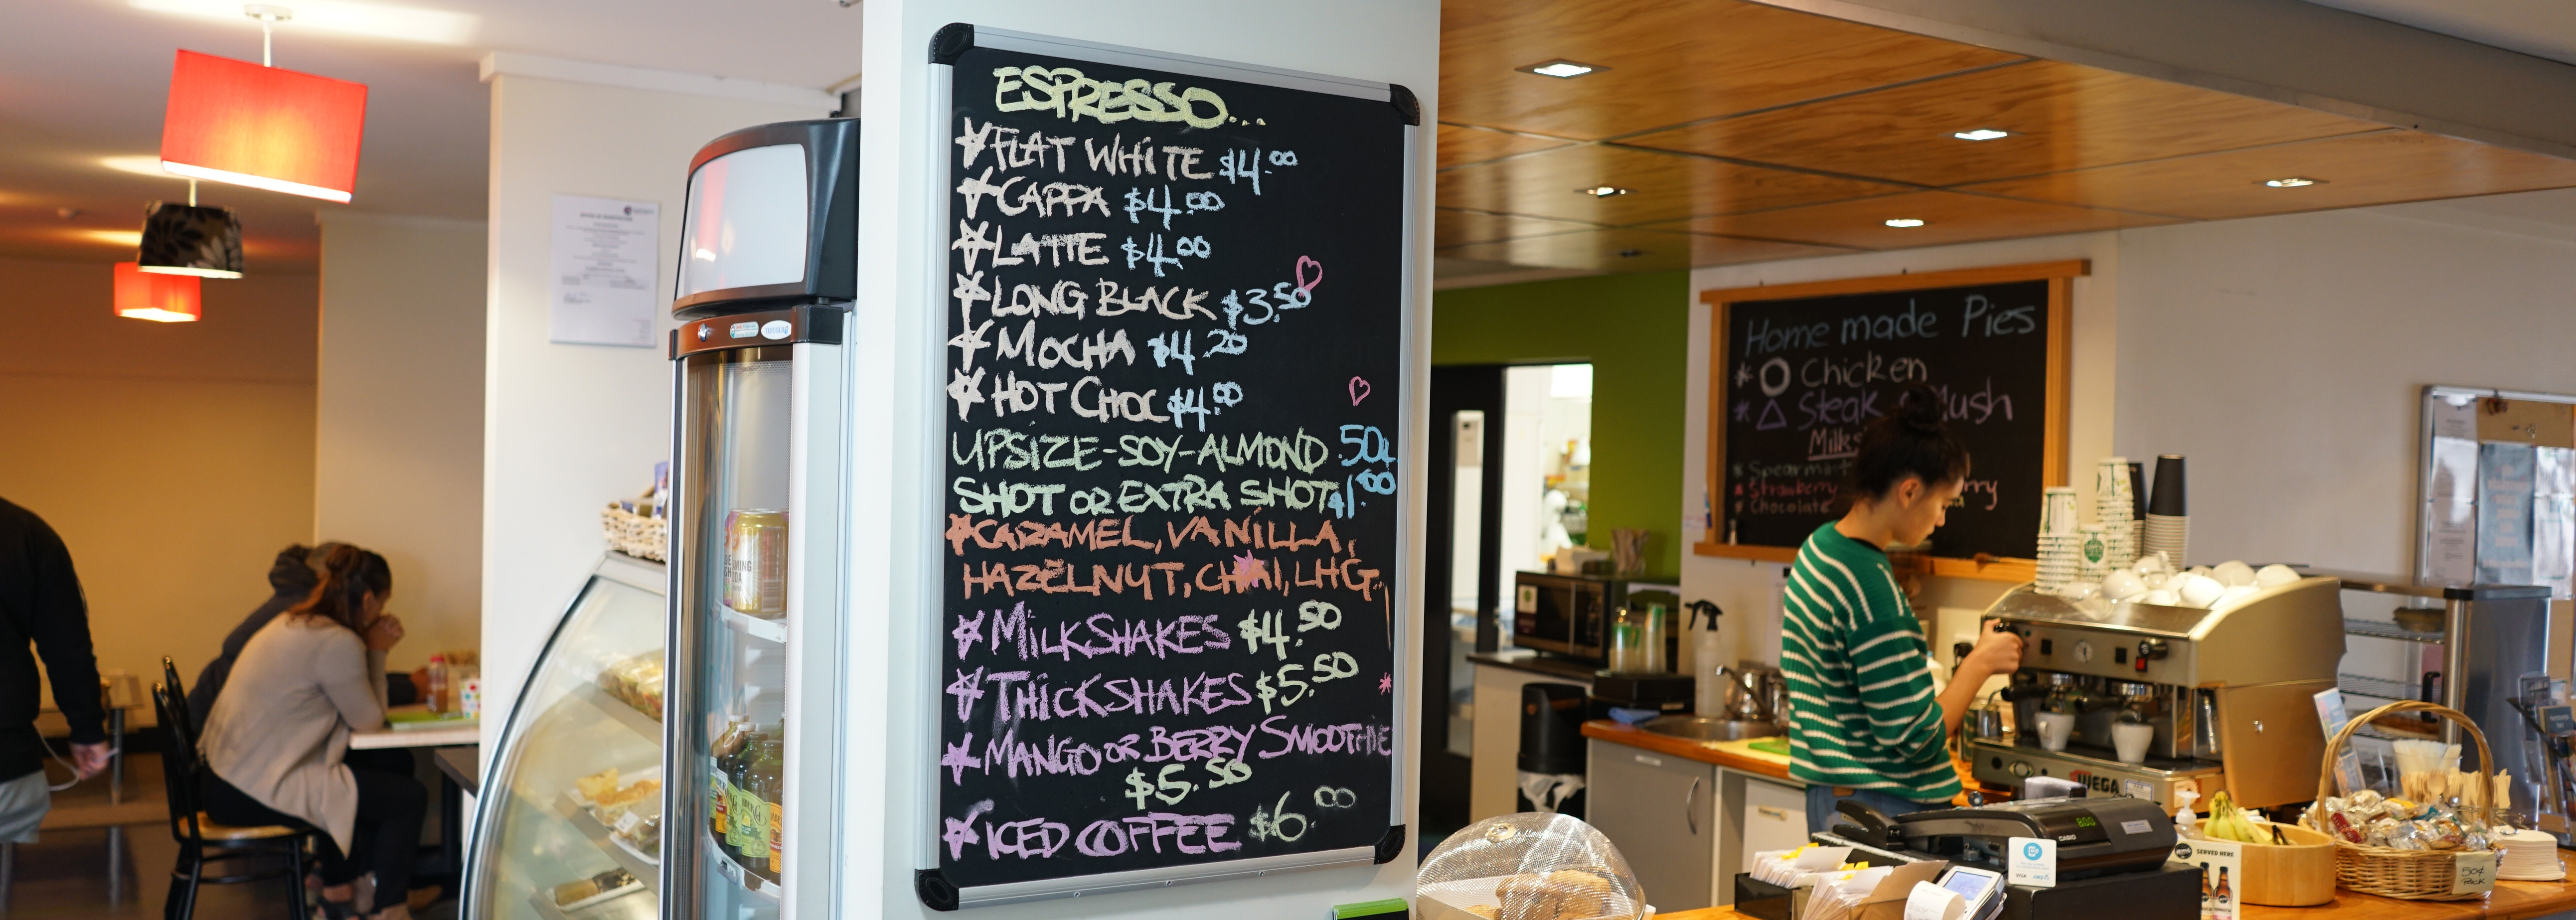 ESPRESSO...
FLAT WHITE $4.00
CAPPA $4.00
LATTE $4.00
LONG BLACK $3.50
MOCHA $4.20
HOT CHOC $4.00
UPSIZE-SOY-ALMOND .50¢
SHOT OR EXTRA SHOT $1.00
CARAMEL, VANILLA,
HAZELNUT, CHAI, LHG.
MILKSHAKES $4.50
THICKSHAKES $5.50
MANGO OR BERRY SMOOTHIE
$5.50
ICED COFFEE $6.00
Home made Pies
Chicken
Steak
Spearmint
Strawberry
Chocolate
WEGA
CASIO
8.00
VISA
SERVED HERE
50¢
PACK